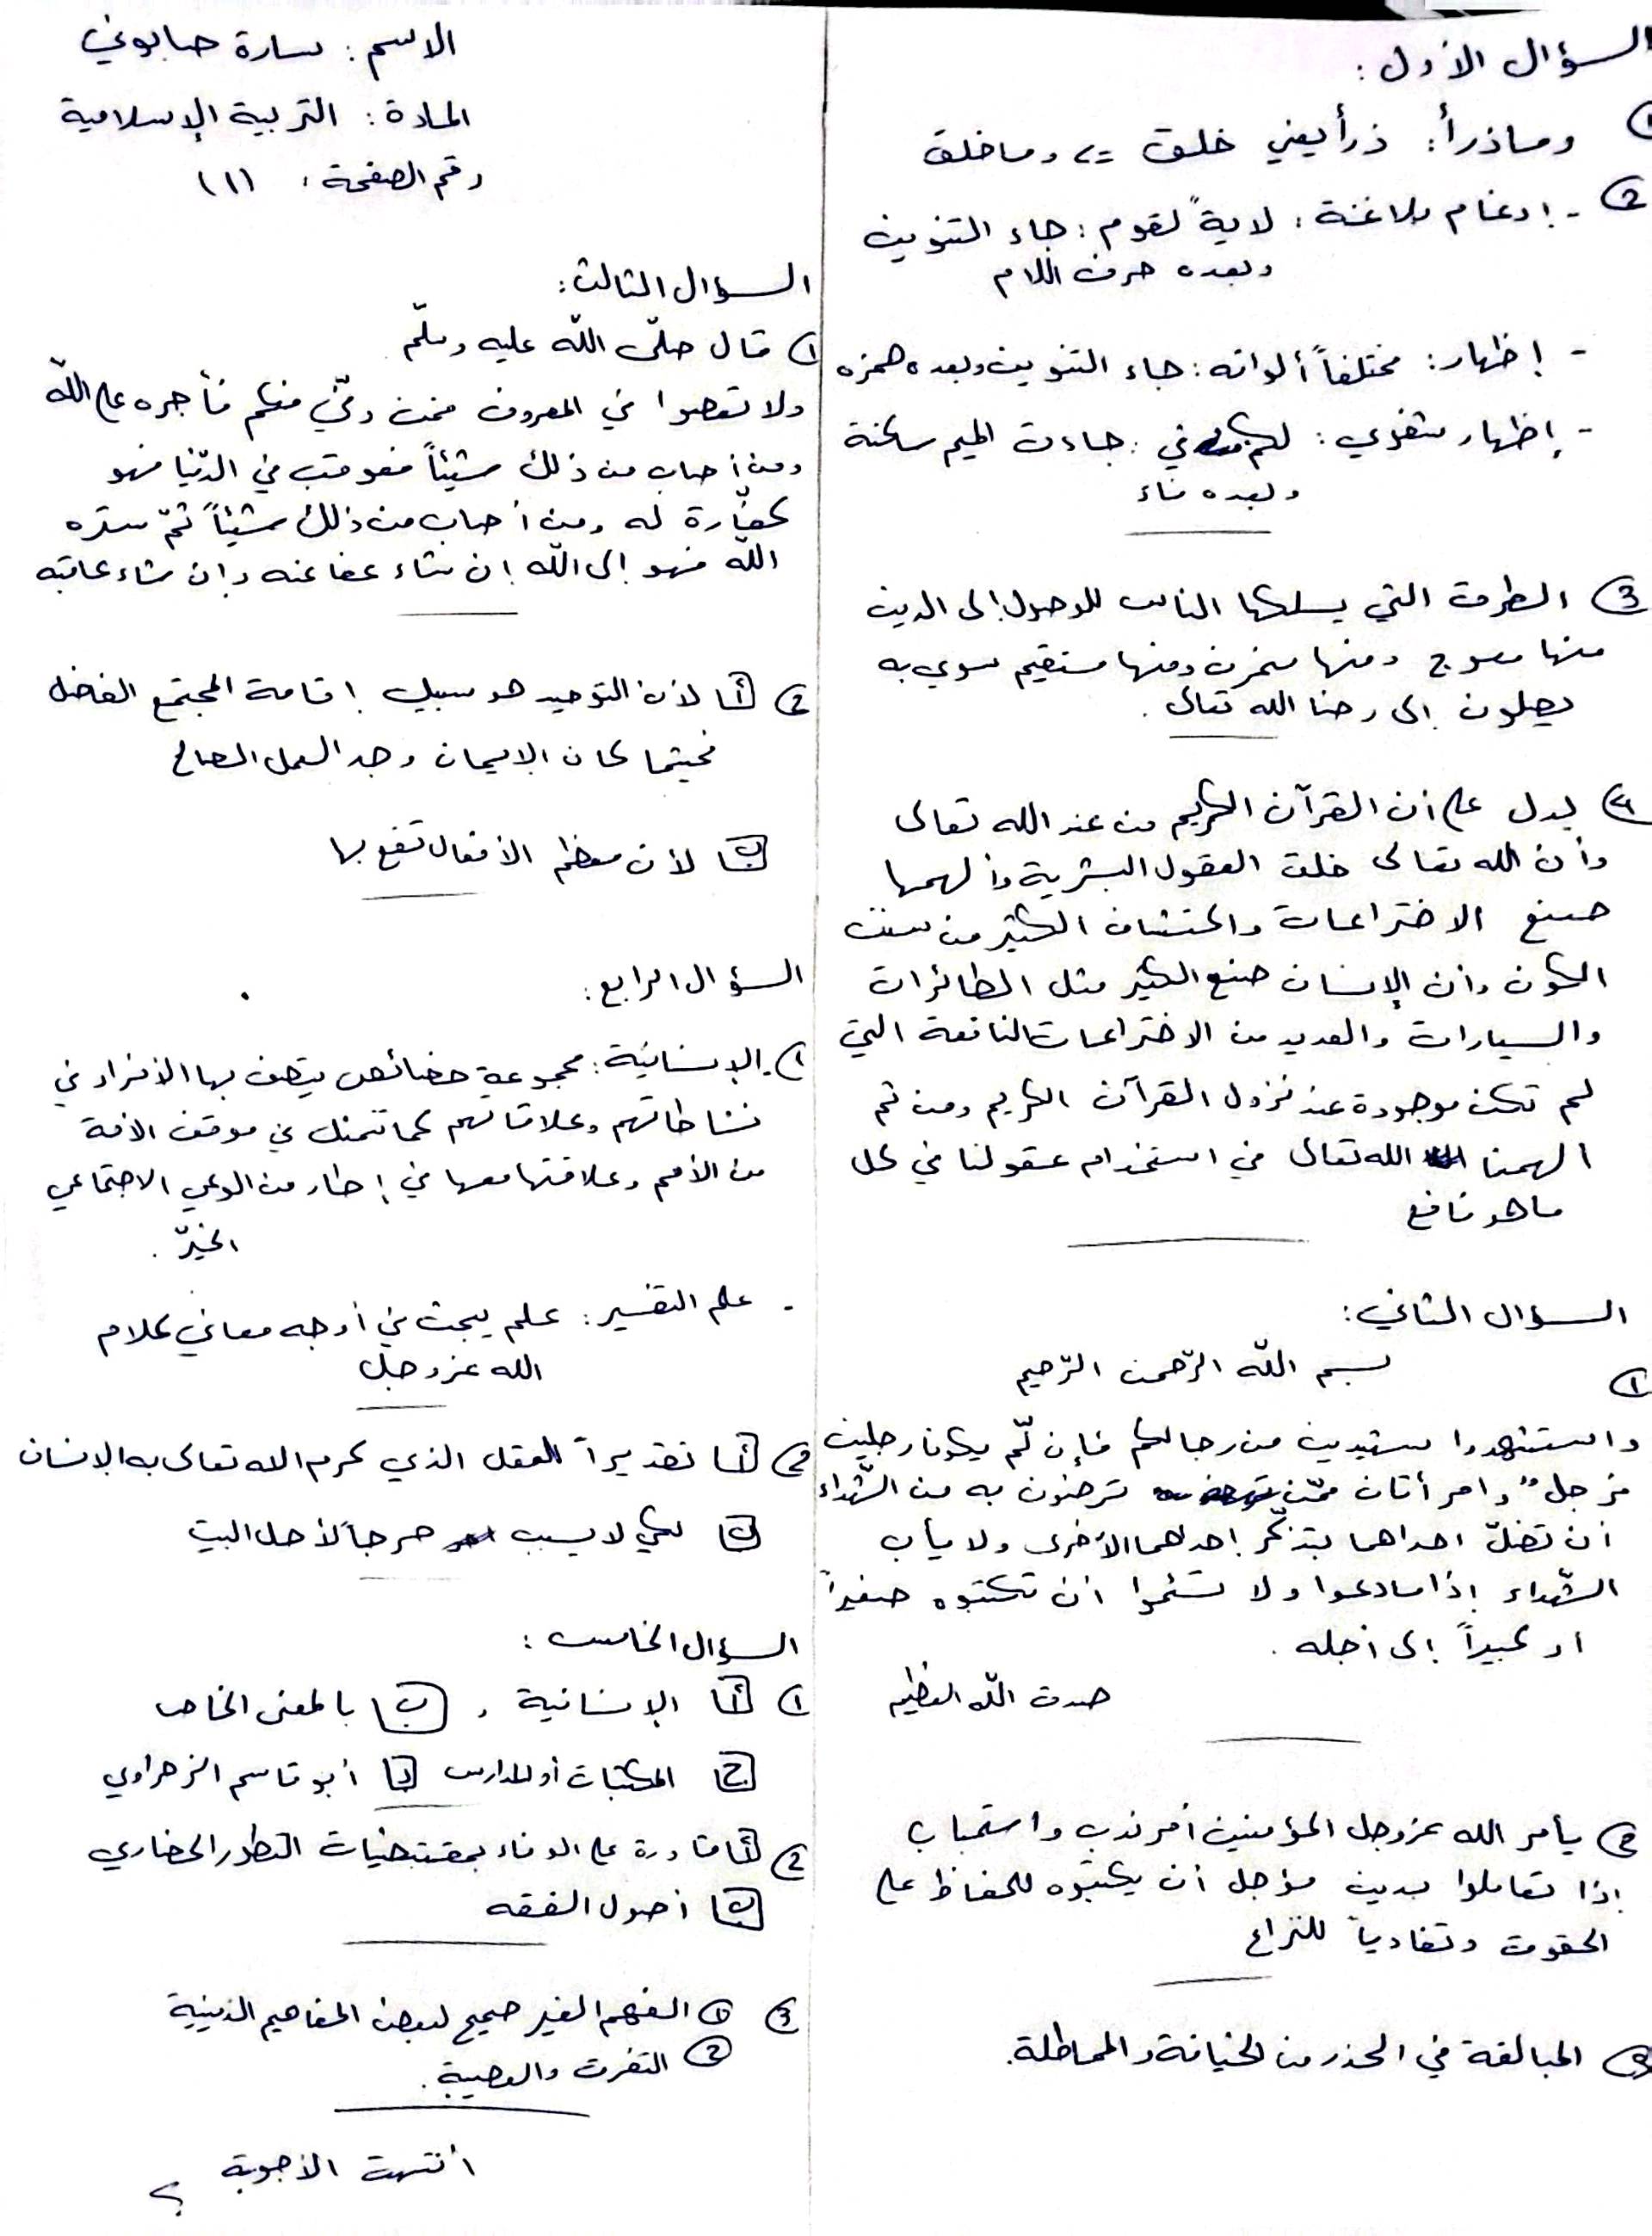 السؤال الأول:
① وما ذرأ: ذرأ يعني خلق => وما خلق
② - إدغام بلاغنة: لاية ً لقوم: جاء التنوين
وبعده حرف اللام
- إظهار: مختلفاً ألوانه: جاء التنوين وبعده همزه
- إظهار شفوي: لكم في: جاءت الميم ساكنة
وبعده فاء
③ الطرق التي يسلكها الناس للوصول إلى الدين
منها معوج ومنها منحرف ومنها مستقيم سوي به
يصلون إلى رضا الله تعالى.
④ يدل على أن القرآن الكريم من عند الله تعالى
وأن الله تعالى خلق العقول البشرية وألهمها
صنع الاختراعات واكتشاف الكثير من سنن
الكون وأن الإنسان صنع الكثير مثل الطائرات
والسيارات والعديد من الاختراعات النافعة التي
لم تكن موجودة عند نزول القرآن الكريم ومن ثم
الهمنا الله تعالى في استخدام عقولنا في كل
ما هو نافع
السؤال الثاني:
① بسم الله الرّحمن الرّحيم
واستشهدوا شهيدين من رجالكم فإن لّم يكونا رجلين
فرجلٌ وامرأتان ممّن ترضون به من الشّهداء
أن تضلّ احداهما فتذكّر إحداهما الأخرى ولا يأب
الشّهداء إذا ما دعوا ولا تسئموا أن تكتبوه صغيراً
أو كبيراً إلى أجله.
صدق اللّه العظيم
② يأمر الله عزوجل المؤمنين أمر ندب واستحباب
إذا تعاملوا بدين مؤجل أن يكتبوه للحفاظ على
الحقوق وتفادياً للنزاع
③ المبالغة في الحذر من الخيانة والمماطلة.
الاسم: سارة صابوني
المادة: التربية الإسلامية
رقم الصفحة: (١)
السؤال الثالث:
① قال صلّى اللّه عليه وسلّم
ولا تعصوا في المعروف فمن وفّى منكم فأجره على اللّه
ومن أصاب من ذلك شيئاً فعوقب في الدّنيا فهو
كفّارة له ومن أصاب من ذلك شيئاً ثمّ ستره
اللّه فهو إلى اللّه إن شاء عفا عنه وإن شاء عاقبه
② أ لأن التوحيد هو سبيل إقامة المجتمع الفاضل
فحيثما كان الإيمان وجد العمل الصالح
ب لأن معظم الأفعال تقع بها
السؤال الرابع:
① - الإنسانيّة: مجموعة خصائص يتصف بها الأفراد في
نشاطاتهم وعلاقاتهم كما تتمثل في موقف الأمة
من الأمم وعلاقتها معها في إطار من الوعي الاجتماعي
الخيّر.
- علم التفسير: علم يبحث في أوجه معاني كلام
الله عزوجل
② أ تقديراً للعقل الذي كرم الله تعالى به الإنسان
ب لكي لا يسبب حرجاً لأهل البيت
السؤال الخامس:
① أ الإنسانية، ب بالمعنى الخاص
ج المكتبات أو المدارس د أبو قاسم الزهراوي
② أ قادرة على الوفاء بمقتضيات التطور الحضاري
ب أصول الفقه
③ ① الفهم الغير صحيح لبعض المفاهيم الدينية
② التفرق والعصبية.
انتهت الأجوبة